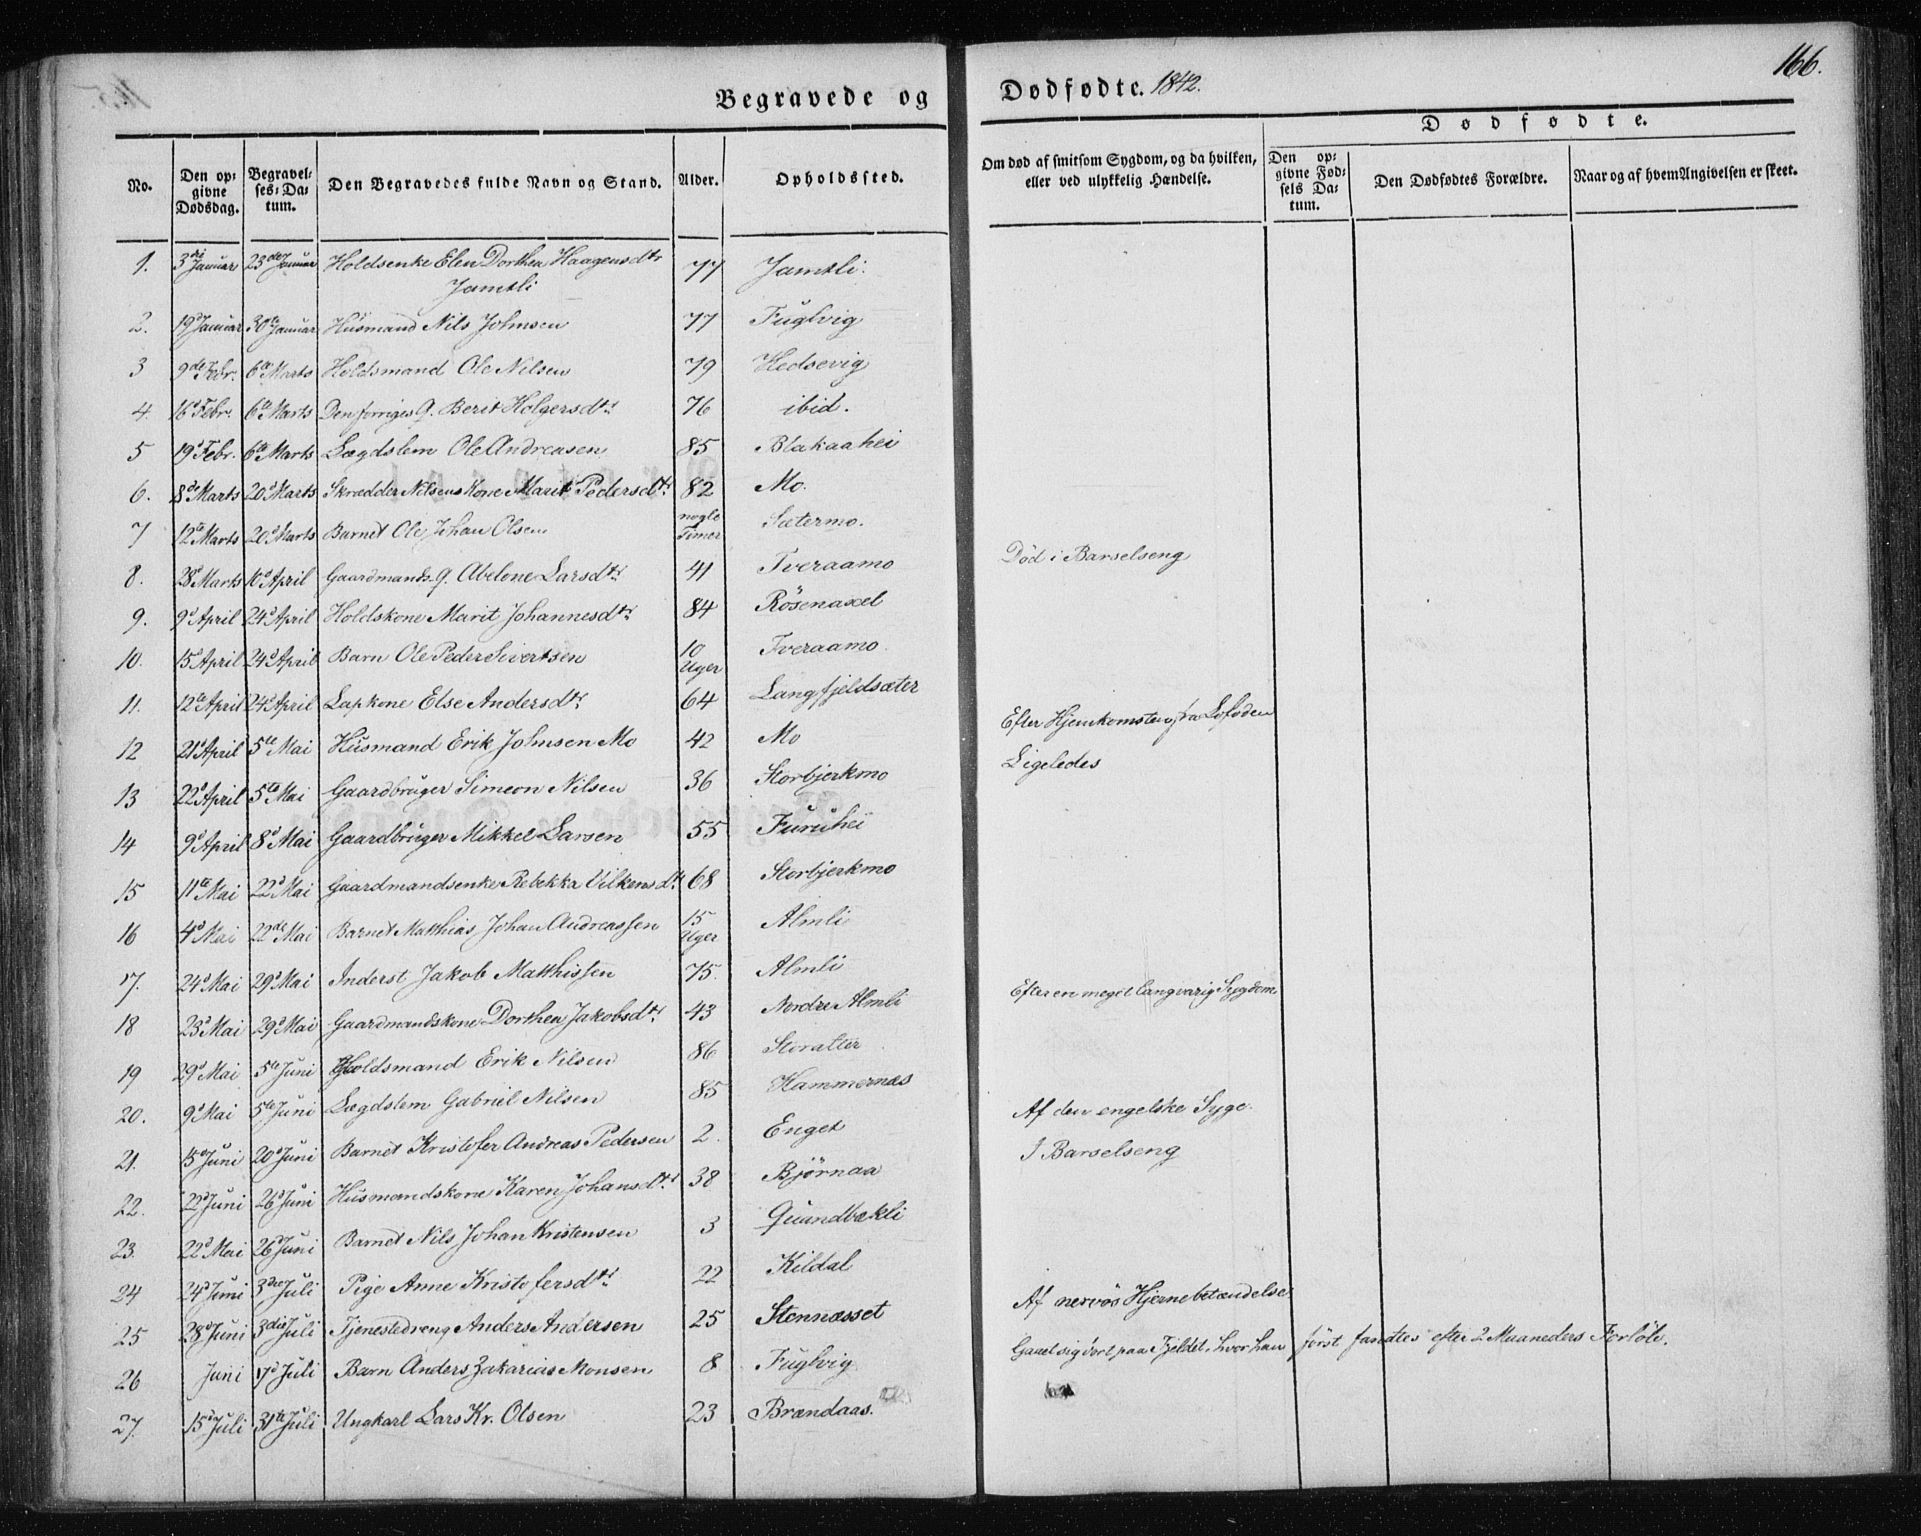 166.
Begravede og Dødfødte. 1842.
Dødfødte.
No. Den opgivne Dødsdag. Begravelses-Datum. Den Begravedes fulde Navn og Stand. Alder. Opholdssted. Om død af smitsom Sygdom, og da hvilken, eller ved ulykkelig Hændelse. Den opgivne Fødsels Datum. Den Dødfødtes Forældre. Naar og af hvem Angivelsen er skeet.
1. 3die Januar 23de Januar Holdsenke Elen Dorthea Haagensdtr 77 Jamtli.
Jamtli
2. 19d Januar 30te Januar Husmand Nils Johnsen 77 Fuglvig
3 9de Febr. 6te Marts Holdsmand Ole Nilsen 79 Hedsevig
4 16d Febr. 6te Marts Den forriges G. Berit Holgersdtr 76 ibid.
5 19d Febr. 6te Marts Lægdslem Ole Andreasen 85 Blakaahei
6. 8de Marts 20d Marts Skrædder Nilsens Kone Marit Pedersdtr 82 Mo.
7 12te Marts 20d Marts Barnet Ole Johan Olsen nogle Timer Sætermo.
8. 28d Marts 10d April Gaardmands G. Abelone Larsdtr 41 Tveraamo Død i Barselseng
9. 9d April 24d April Holdskone Marit Johannesdtr 84 Rösenaxel
10. 15d April 24d April Barn Ole Peder Sivertsen 10 Uger Tveraamo.
11. 12te April 24d April Lapkone Else Andersdtr 64 Langfjeldsæter
12 21d April 5te Mai Husmand Erik Johnsen Mo 42 Mo Efter Hjemkomsten fra Lofoden
13 22d April 5te Mai Gaardbruger Simeon Nilsen 36 Storbjerkmo Ligeledes
14 9d April 8d Mai Gaardbruger Mikkel Larsen 55 Furuhei
15 11te Mai 22d Mai Gaardmandsenke Rebekka Vilkensdtr 68 Storbjerkmo
16 4d Mai 22de Mai Barnet Matthias Johan Andreassen 15 Uger Almli
17. 24d Mai 29d Mai Inderst Jakob Matthissen 75. Almli
18 23d Mai 29d Mai Gaardmandskone Dorthea Jakobsdtr 43 Nordre Almli Efter en meget langvarig Sygdom
19 29d Mai 5te Juni Holdsmand Erik Nilsen 86 Storatter
20. 9d Mai 5te Juni Lægdslem Gabriel Nilsen 85 Hammernæs
21. 15d Juni 20d Juni Barnet Kristofer Andreas Pedersen 2. Enget Af den engelske Syge.
22. 22d Juni 26d Juni Husmandskone Karen Johansdtr 38 Bjørnaa I Barselseng
23. 22d Mai 26d Juni Barnet Nils Johan Kristensen 3 Grundbækli
24 24d Juni 3die Juli Pige Anne Kristofersdtr 22 Kildal
25 28d Juni 3die Juli Tjenestedreng Anders Andersen 25 Stennæsset Af nervøs Hjernebetændelse
26 Juni 17d Juli Barn Anders Zakarias Monsen 8 Fuglvig Gaaet sig bort paa Fjeldet, hvor han først fandtes efter 2 Maaneders Forløb.
27. 15d Juli 31te Juli Ungkarl Lars Kr. Olsen 23 Brændaas.